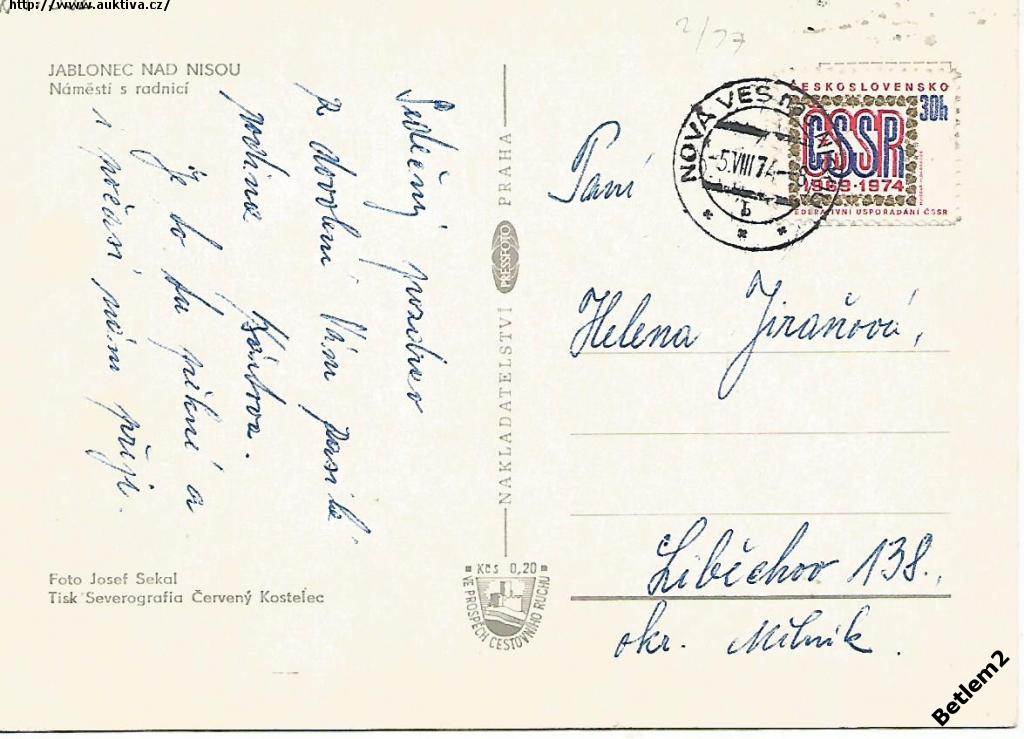 http://www.auktiva.cz/
2/77
JABLONEC NAD NISOU
Náměstí s radnicí
Srdečný pozdrav
z dovolení Vám posílá
rodina
Je to tu pěkné a
i počasí nám přeje.
NAKLADATELSTVÍ PRESSFOTO PRAHA
Kčs 0,20
VE PROSPĚCH CESTOVNÍHO RUCHU
Foto Josef Sekal
Tisk Severografia Červený Kostelec
ČESKOSLOVENSKO
30h
ČSSR
1969-1974
FEDERATIVNÍ USPOŘÁDÁNÍ ČSSR
NOVÁ VES
-5.VIII.74
b
Paní
Helena Jiraňová,
Liběchov 138.,
okr. Mělník.
Betlem2